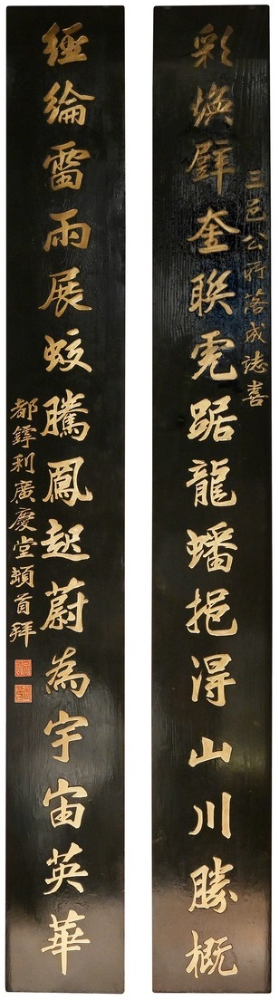 三邑公所落成誌喜
彩煥壁奎聯虎踞龍蟠挹得山川勝概
經綸雷雨展蛟騰鳳起蔚為宇宙英華
都鐸利廣慶堂頓首拜